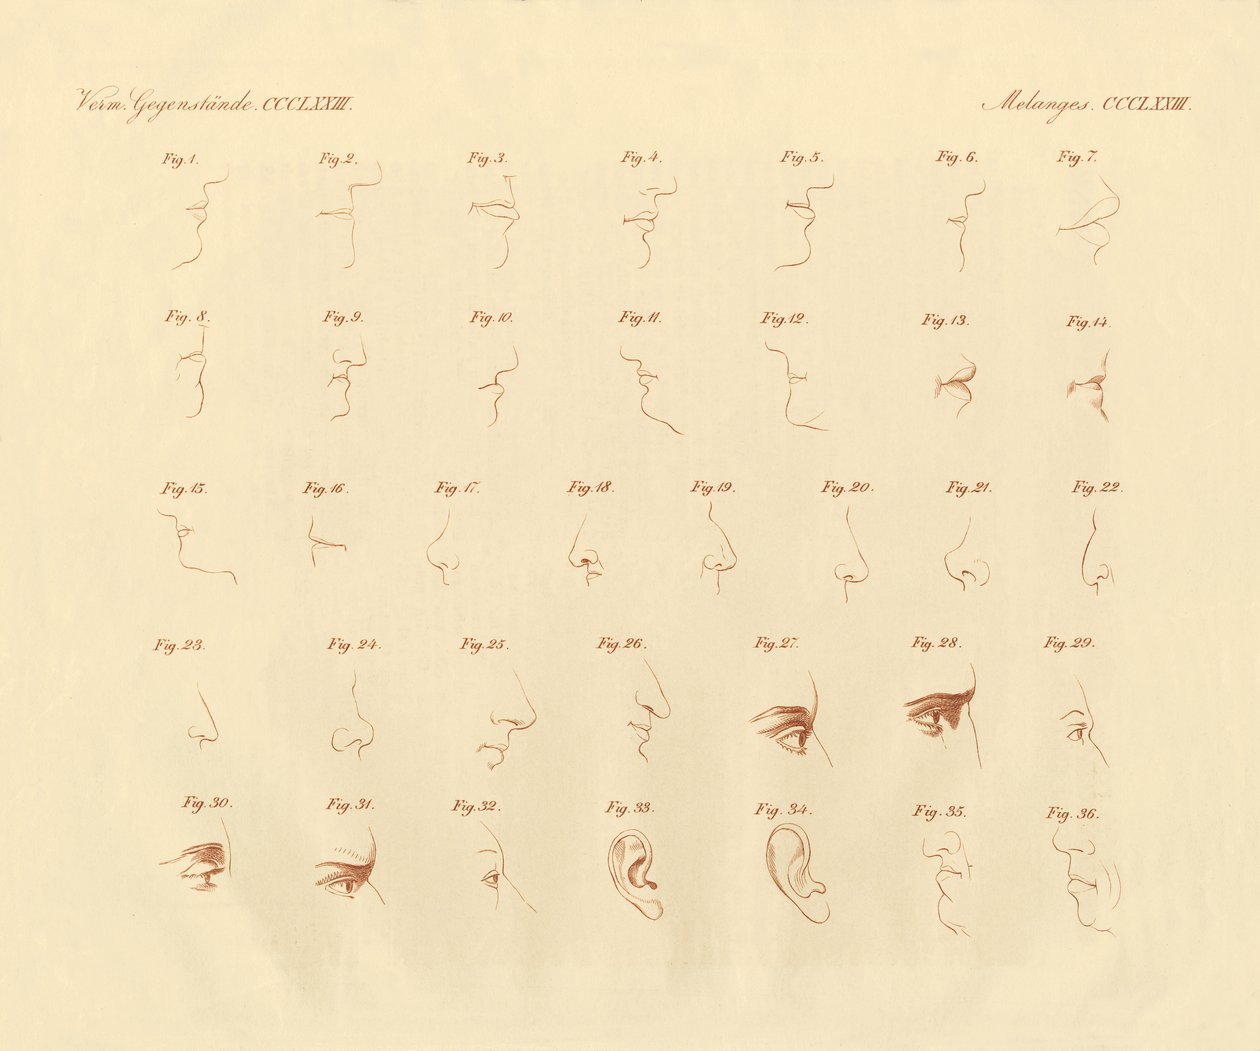 Verm. Gegenstände. CCCLXXIII.
Melanges. CCCLXXIII.
Fig. 1. Fig. 2. Fig. 3. Fig. 4. Fig. 5. Fig. 6. Fig. 7.
Fig. 8. Fig. 9. Fig. 10. Fig. 11. Fig. 12. Fig. 13. Fig. 14.
Fig. 15. Fig. 16. Fig. 17. Fig. 18. Fig. 19. Fig. 20. Fig. 21. Fig. 22.
Fig. 23. Fig. 24. Fig. 25. Fig. 26. Fig. 27. Fig. 28. Fig. 29.
Fig. 30. Fig. 31. Fig. 32. Fig. 33. Fig. 34. Fig. 35. Fig. 36.